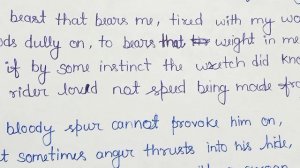 beast that bears me, tired with my wo
ods dully on, to bears that weight in me
if by some instinct the wretch did kno
rider lov'd not speed being made fro
bloody spur cannot provoke him on,
t sometimes anger thrusts into his hide,